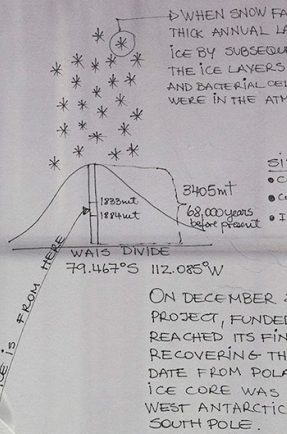 WHEN SNOW FA
THICK ANNUAL LA
ICE BY SUBSEQUE
THE ICE LAYERS
AND BACTERIAL CEL
WERE IN THE ATM
3405mt
68,000 years
before present
1833mt
1884mt
WAIS DIVIDE
79.467°S 112.085°W
ICE IS FROM HERE
ON DECEMBER
PROJECT, FUNDE
REACHED ITS FIN
RECOVERING TH
DATE FROM POLA
ICE CORE WAS
WEST ANTARCTIC
SOUTH POLE.